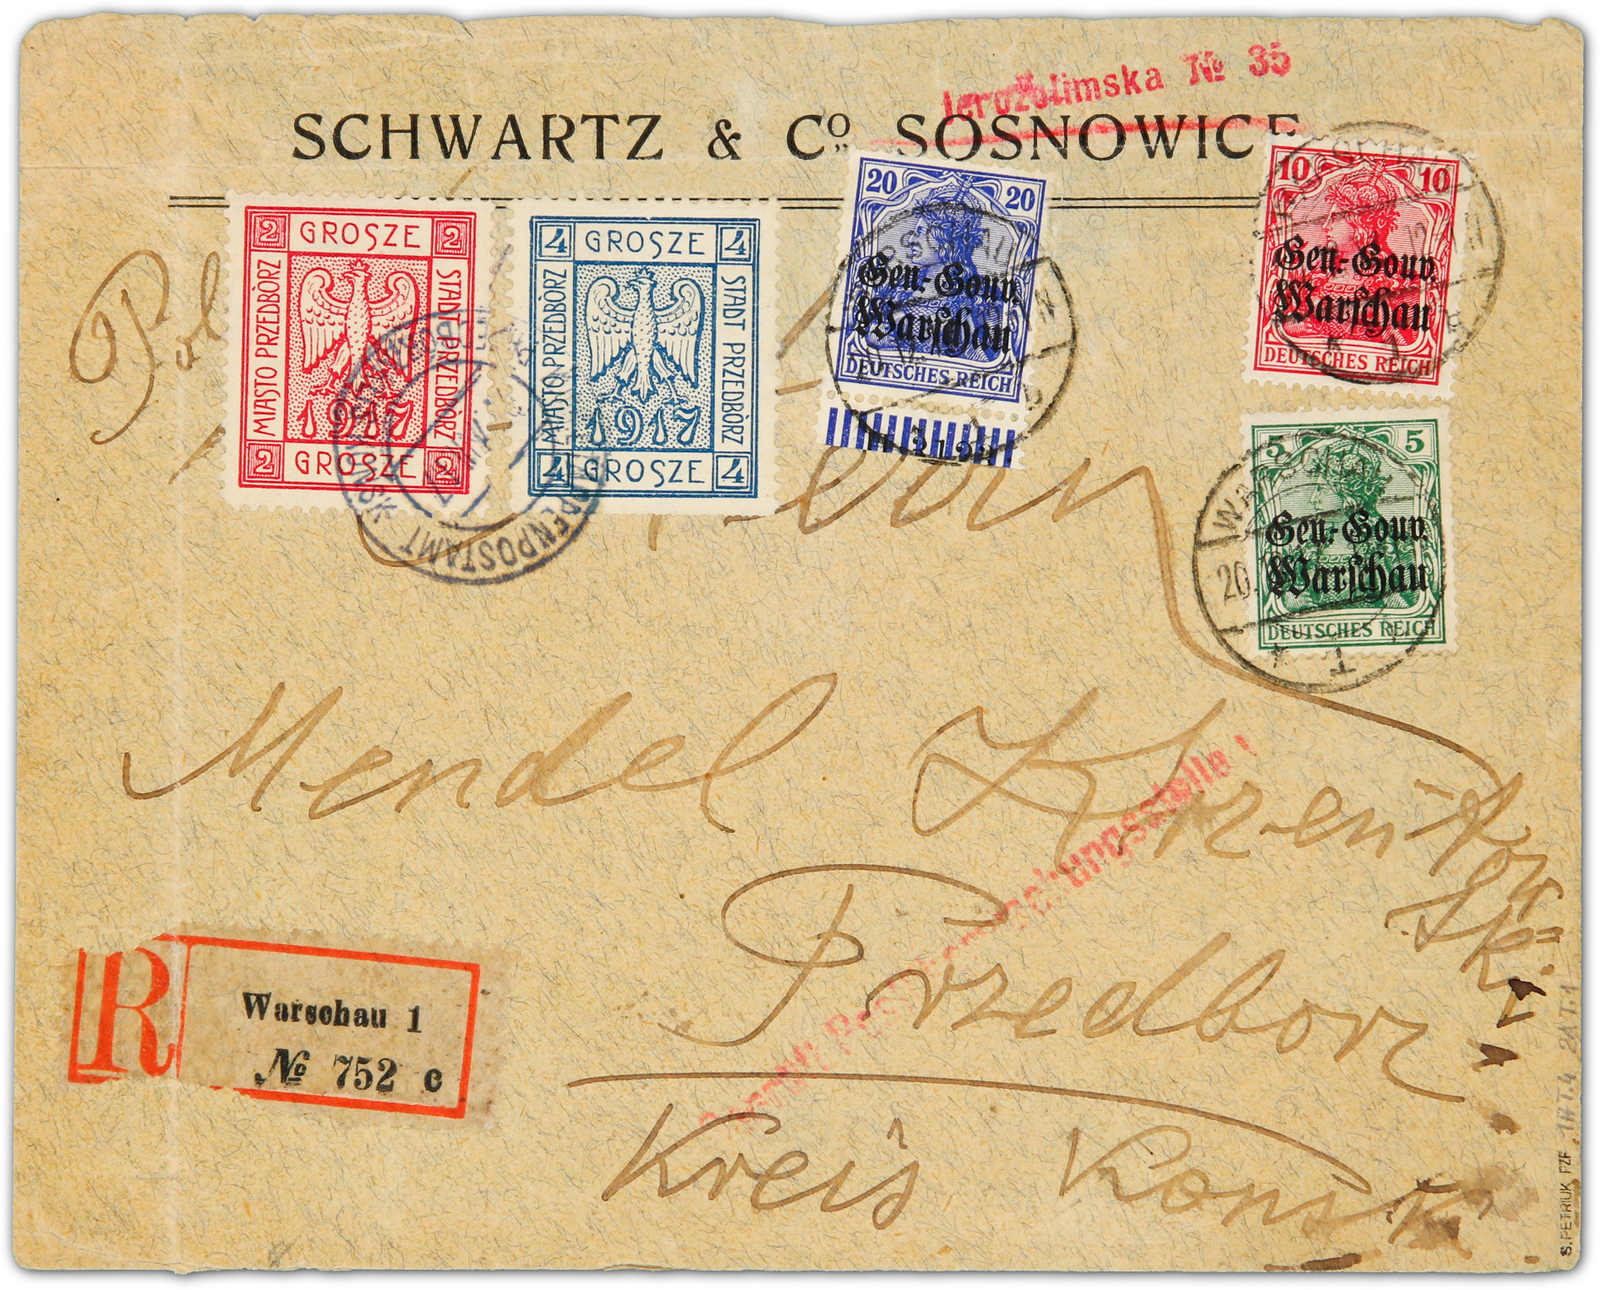 Jerozolimska № 35
SCHWARTZ & Co. SOSNOWICE
2 GROSZE 2
MIASTO PRZEDBÒRZ
STADT PRZEDBÒRZ
1917
2 GROSZE 2
4 GROSZE 4
MIASTO PRZEDBÒRZ
STADT PRZEDBÒRZ
1917
4 GROSZE 4
20 20
Gen.-Gouv.
Warschau
DEUTSCHES REICH
10 10
Gen.-Gouv.
Warschau
DEUTSCHES REICH
5 5
Gen.-Gouv.
Warschau
DEUTSCHES REICH
WARSCHAU
20.
* 1
Mendel
Przedborz
Kreis Konsk
R Warschau 1
№ 752 c
S. PETRIUK PZF